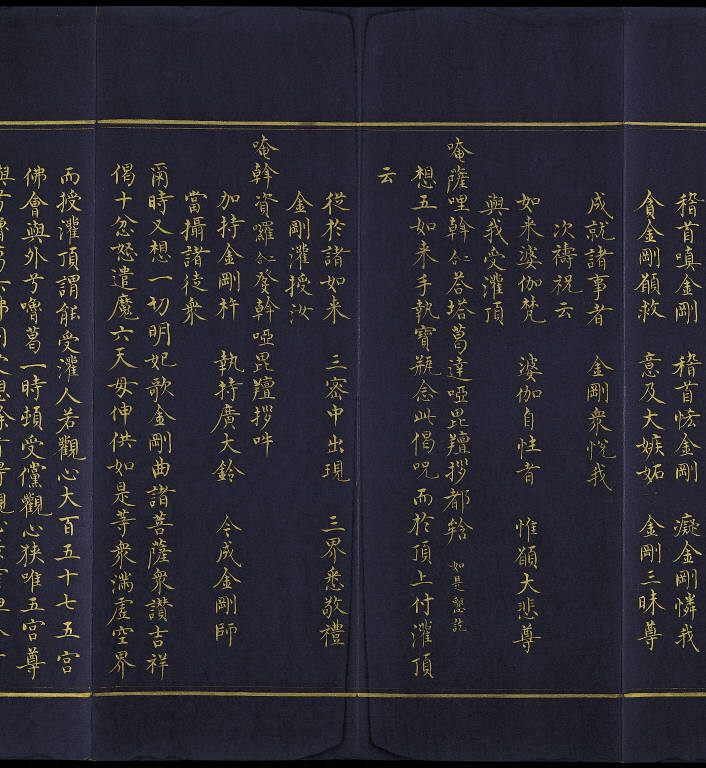 稽首嗔金剛　稽首悋金剛　癡金剛憐我
貪金剛願救　意及大嫉妬　金剛三昧尊
成就諸事者　金剛衆悅我
次禱祝云
如来婆伽梵　婆伽自性者　惟願大悲尊
與我受灌頂
唵薩哩斡𠆙荅塔葛達啞毘羶拶都𤚥 如是懇訖
想五如来手執寶瓶念此偈呪而於頂上付灌頂
云
從於諸如来　三密中出現　三界悉敬禮
金剛灌授汝
唵斡資囉𠆙發斡啞毘羶拶吽
加持金剛杵　執持廣大鈴　令成金剛師
當攝諸徒衆
爾時又想一切明妃歌金剛曲諸菩薩衆讚吉祥
偈十忿怒遣魔六天母伸供如是等衆滿虛空界
而授灌頂謂能受灌人若觀心大百五十七五宮
佛會與外兮嚕葛一時頓受儻觀心狹唯五宮尊